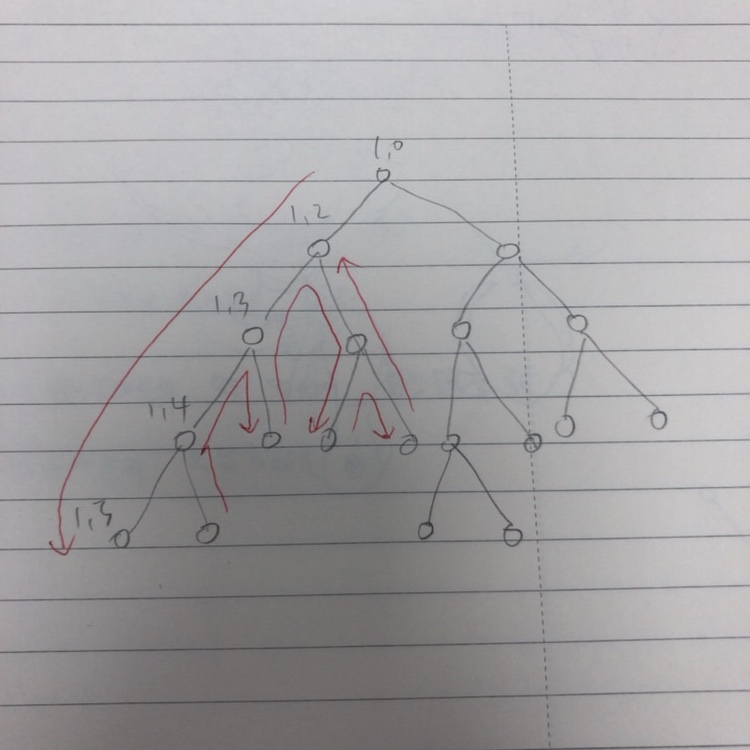 1,0
1,2
1,3
1,4
1,3